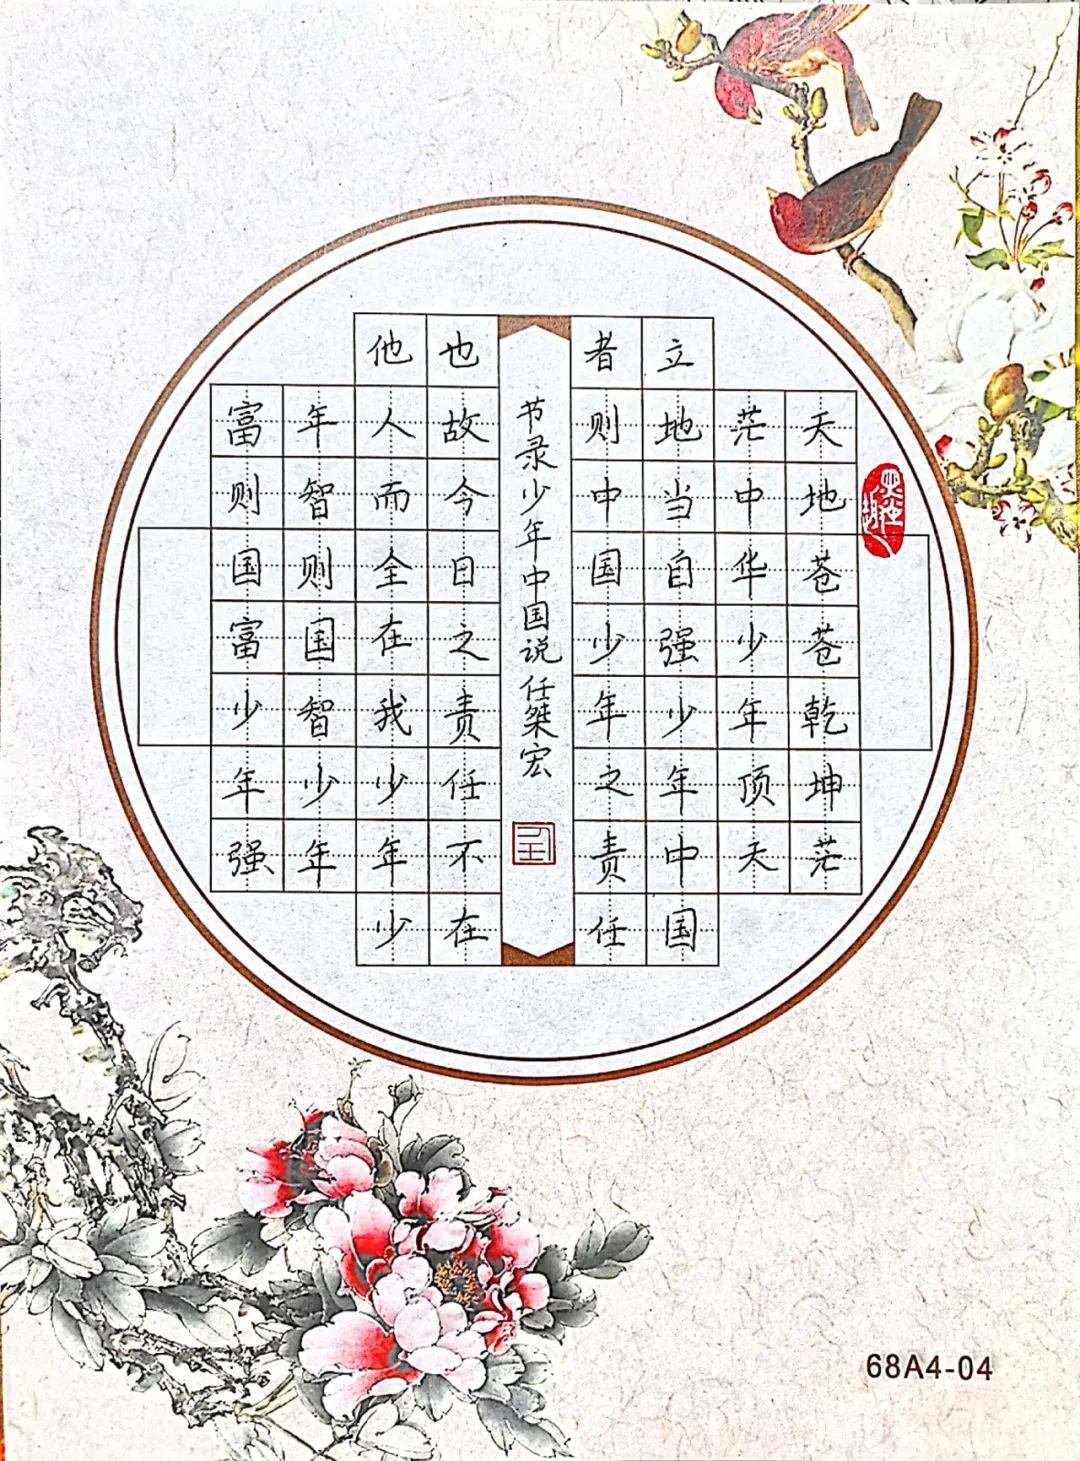 天地苍苍乾坤茫
茫中华少年顶天
立地当自强少年中国
者则中国少年之责任
节录少年中国说任桀宏
也故今日之责任不在
他人而全在我少年少
年智则国智少年
富则国富少年强
墨趣
68A4-04